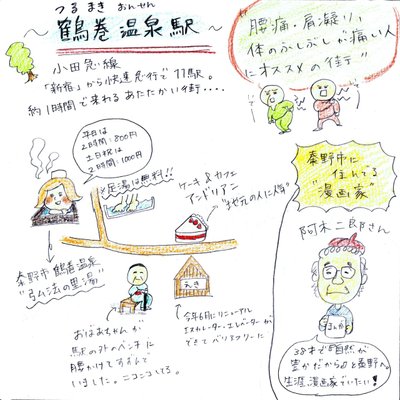 つるまき おんせん
～鶴巻温泉駅～
小田急線
「新宿」から快速急行で11駅。
約1時間で来れるあたたかい街...
"腰痛・肩凝り、
体のふしぶしが痛い人
にオススメの街"
平日は
2時間:800円
土日祝は
2時間:1000円
足湯は無料!!
ケーキ&カフェ
アンドリアン
"地元の人に人気"
秦野市 鶴巻温泉
"弘法の里湯"
えき
おばあちゃんが
駅の外のベンチに
腰かけてすずんで
いました。ニコニコしてる。
今年6月にリニューアル
エスカレーター・エレベーターが
できてバリアフリーに
秦野市に
住んでる
"漫画家"
阿木二郎さん
まんが
38才で"自然が
豊かだから"と秦野へ。
生涯、漫画家でいたい!